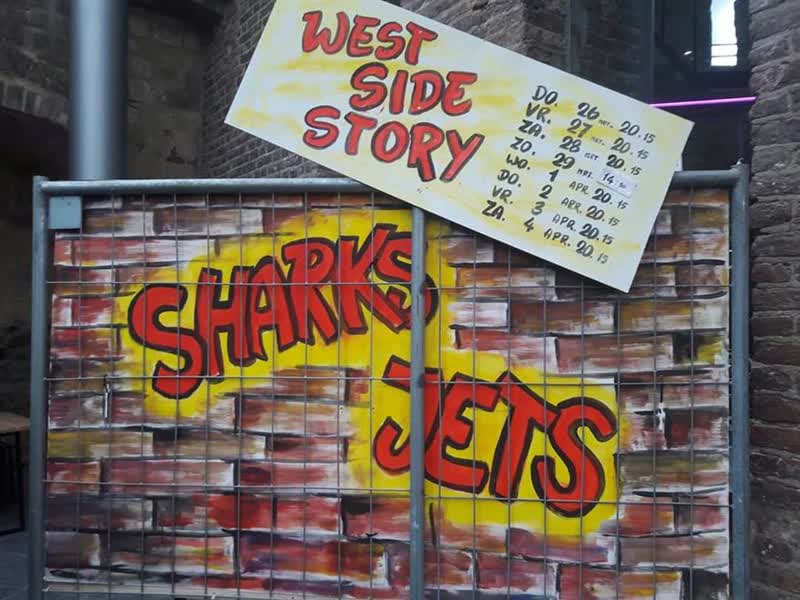 WEST
SIDE
STORY
DO. 26 MRT. 20.15
VR. 27 MRT. 20.15
ZA. 28 MRT 20.15
ZO. 29 MRT. 14.30
WO. 1 APR. 20.15
DO. 2 APR. 20.15
VR. 3 APR. 20.15
ZA. 4 APR. 20.15
SHARKS
JETS